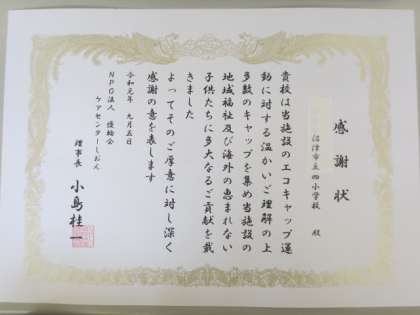 感謝状
沼津市立四小学校 殿
貴校は当施設のエコキャップ運
動に対する温かいご理解の上
多数のキャップを集め当施設の
地域福祉及び海外の恵まれない
子供たちに多大なるご貢献を戴
きました
よってそのご厚意に対し深く
感謝の意を表します
令和元年 九月五日
NPO法人 優輪会
ケアセンターしおん
理事長 小島桂一